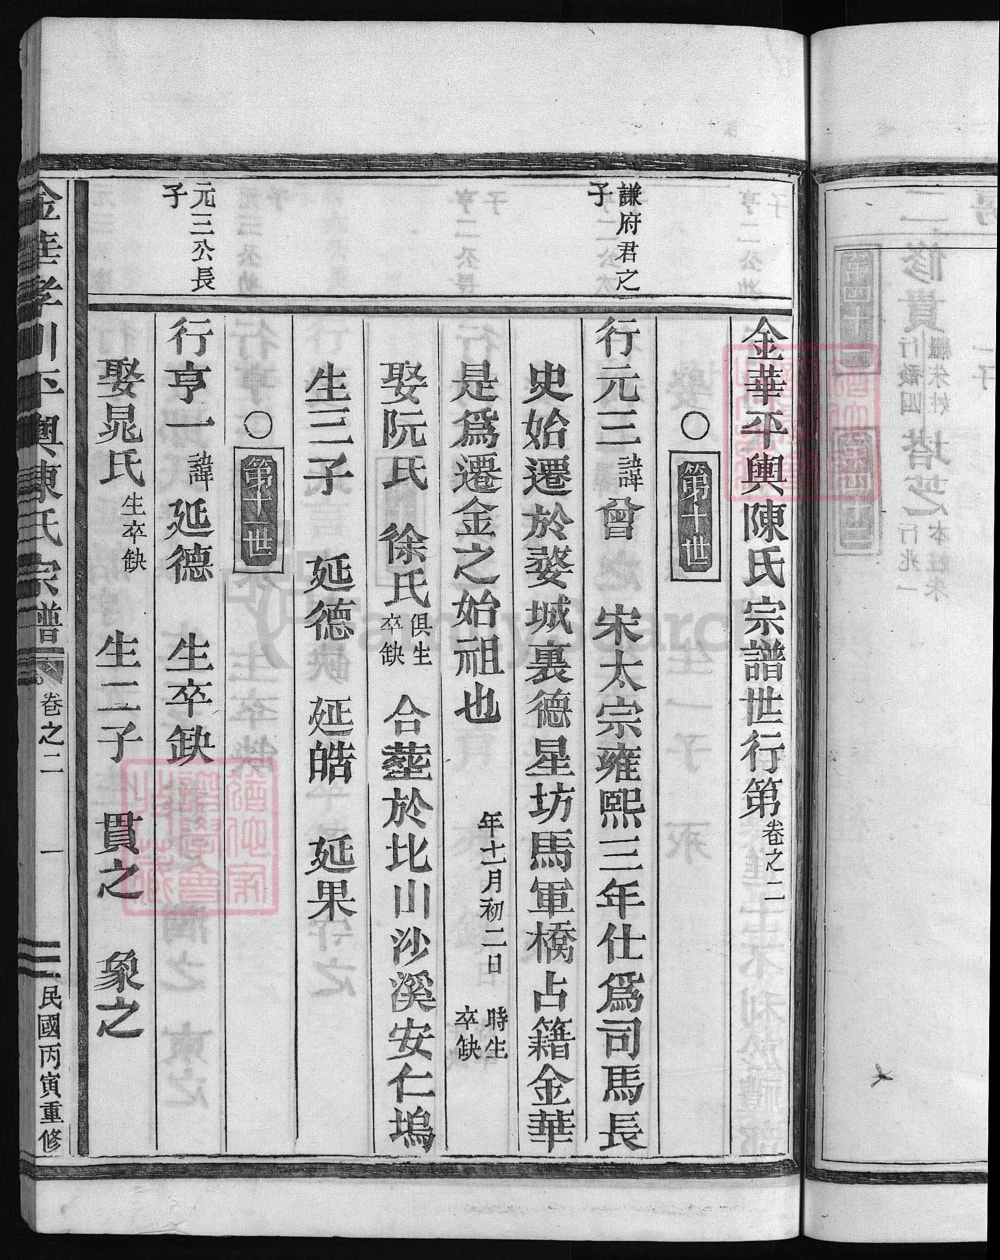 金華平輿陳氏宗譜世行第卷之二
○ 第十世
謙府君之子
行元三諱曾 宋太宗雍熙三年仕爲司馬長
史始遷於婺城裏德星坊馬軍橋占籍金華
是爲遷金之始祖也 年十一月初二日 時生卒缺
娶阮氏 徐氏俱生卒缺 合塟於北山沙溪安仁塢
生三子 延德 延皓 延果
○ 第十一世
元三公長子
行亨一諱延德 生卒缺
娶晁氏生卒缺 生二子 貫之 象之
金華孝川平輿陳氏宗譜 卷之二 一 民國丙寅重修